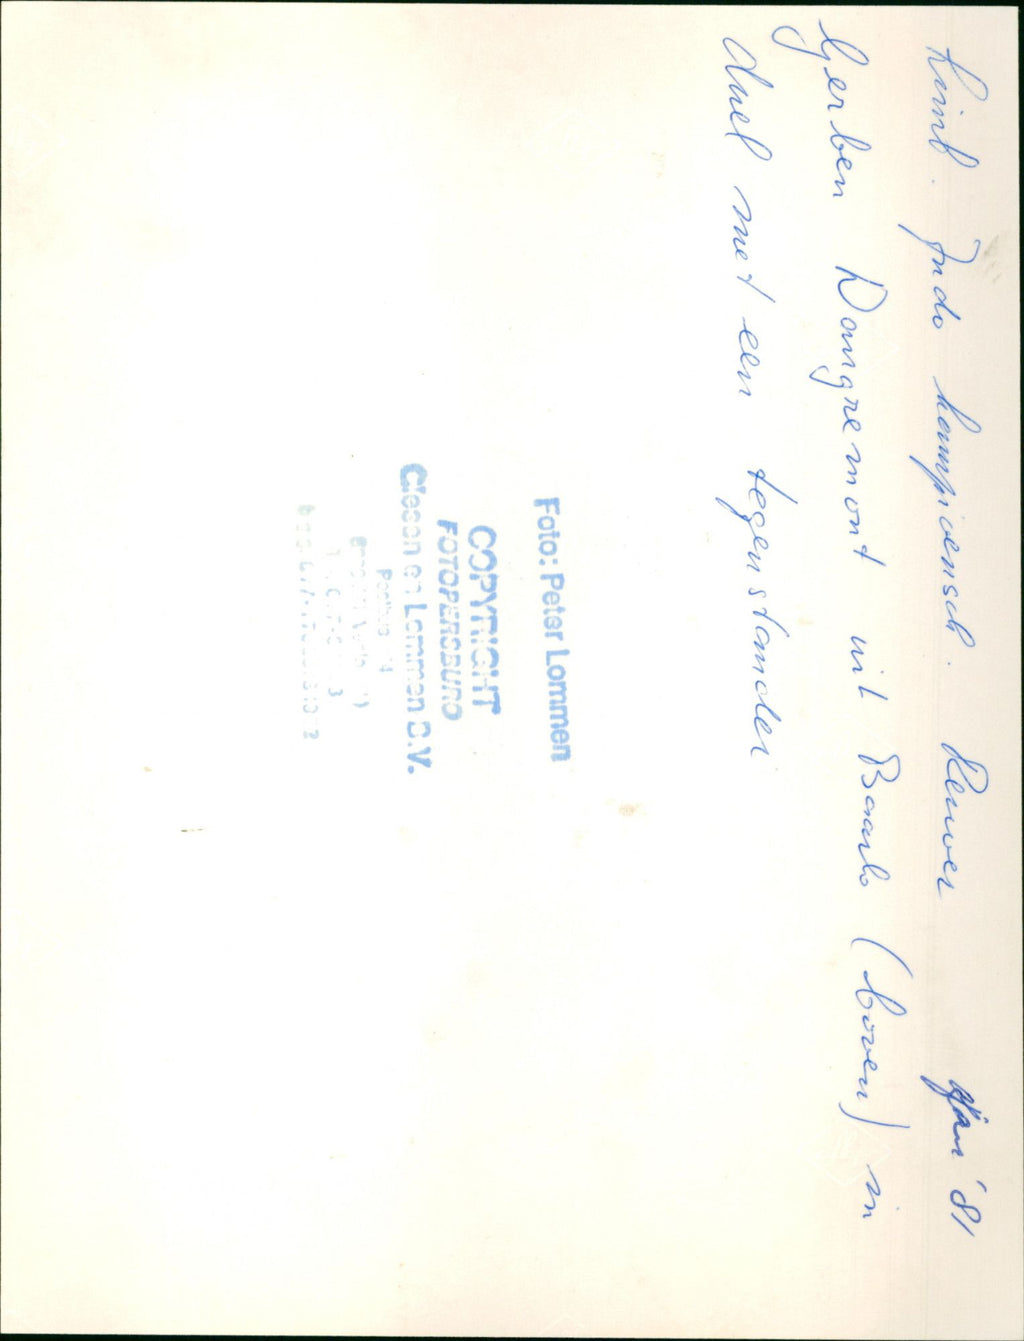 Limb. Judo kampioensch. Reuver jan '81
Gerben Dongremont uit Baarlo (boven) in
duel met een tegenstander
Foto: Peter Lommen
COPYRIGHT
FOTOPERSBURO
Giesen en Lommen B.V.
Postbus